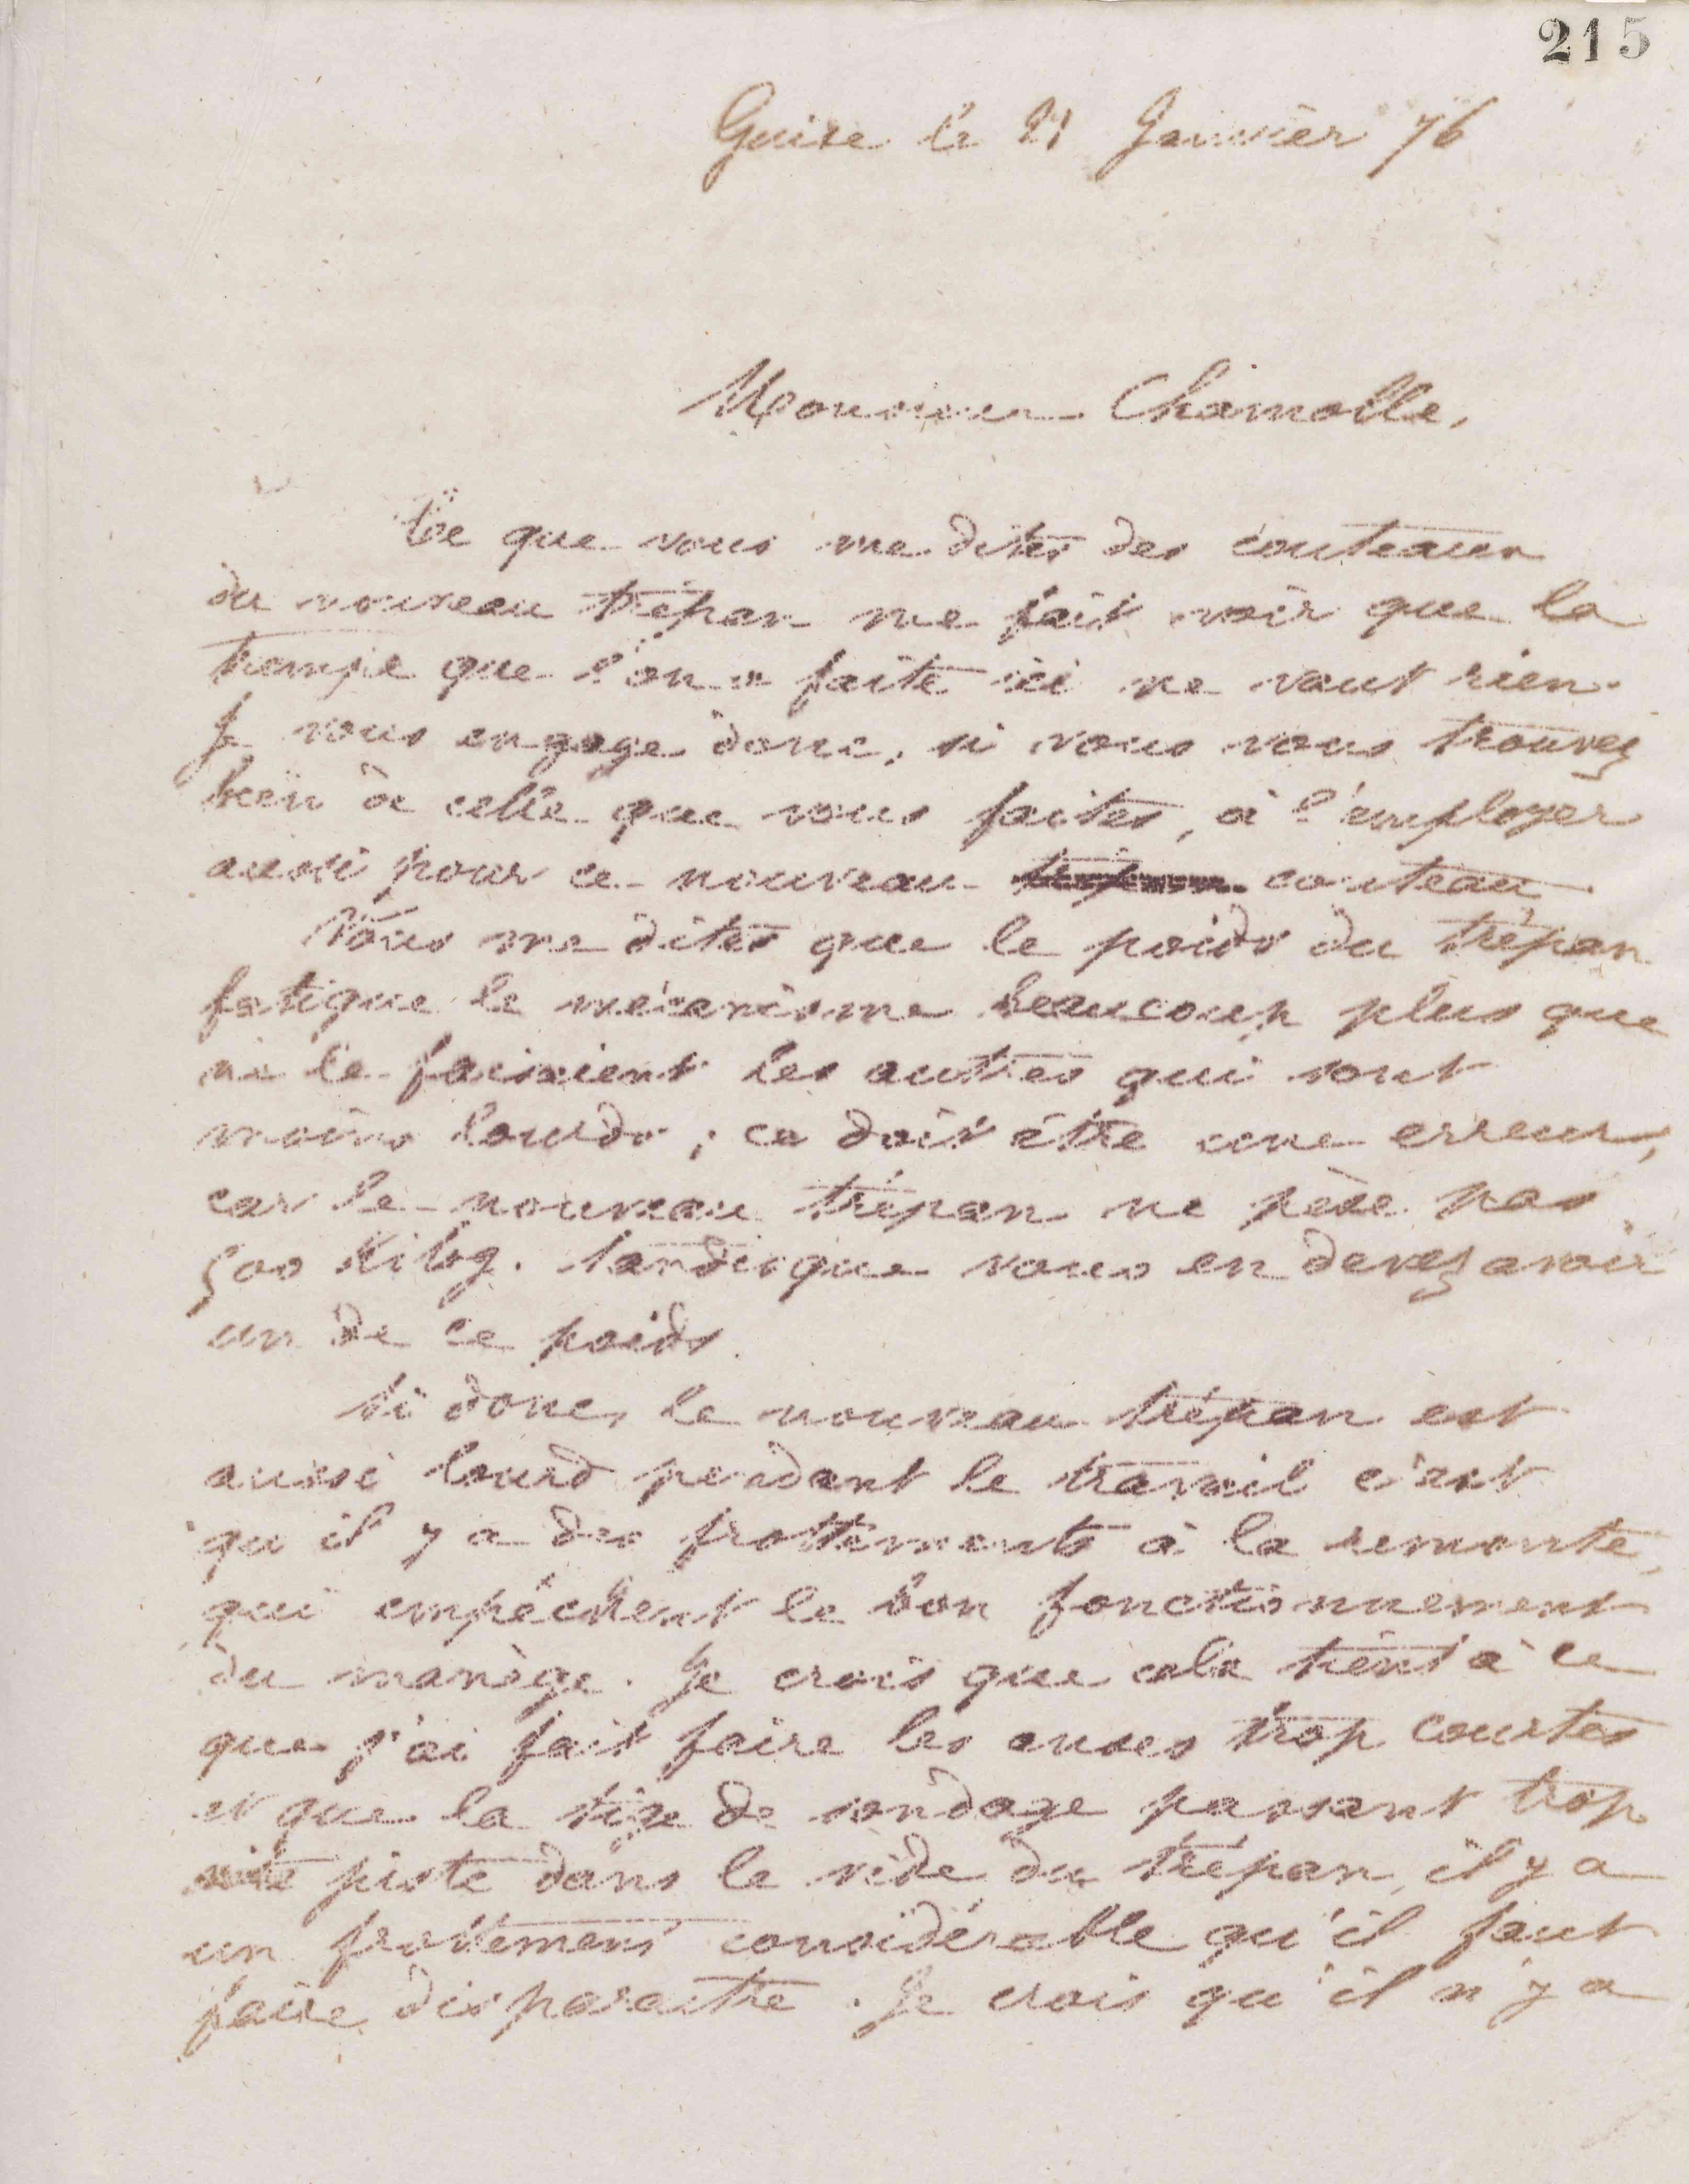 215
Guise le 21 Janvier 76
Monsieur Chamolle,
Ce que vous me dites des couteaux
du nouveau trépan me fait voir que la
trempe que l'on a faite ici ne vaut rien.
Je vous engage donc, si vous vous trouvez
bien de celle que vous faites, à l'employer
aussi pour ce nouveau couteau.
Vous me dites que le poids du trépan
fatigue le mécanisme beaucoup plus que
ne le faisaient les autres qui sont
moins lourds ; ce doit être une erreur,
car le nouveau trépan ne pèse pas
500 Kilog. tandis que vous en devez avoir
un de ce poids.
Si donc, le nouveau trépan est
aussi lourd pendant le travail c'est
qu'il y a des frottements à la remonte,
qui empêchent le bon fonctionnement
du manège. Je crois que cela tient à ce
que j'ai fait faire les anses trop courtes
et que la tige de sondage passant trop
juste dans le vide du trépan, il y a
un frottement considérable qu'il faut
faire disparaitre. Je crois qu'il n'y a